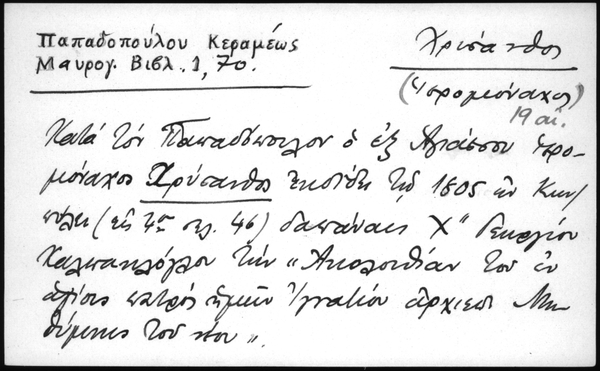 Παπαδοπούλου Κεραμέως
Μαυρογ. Βιβλ. 1, 70.
Χρύσανθος
(Ἱερομόναχος)
19 αἰ.
Κατὰ τὸν Παπαδόπουλον ὁ ἐξ Ἀγιάσσου ἱερο-
μόναχος Χρύσανθος ἐκδίδει τῷ 1805 ἐν Κων/
πόλει (εἰς 4ον σελ. 46) δαπάναις Χ" Γεωργίου
Χαλπακλόγλου τὴν «Ἀκολουθίαν τοῦ ἐν
ἁγίοις πατρὸς ἡμῶν Ἰγνατίου ἀρχιεπ. Μη-
θύμνης τοῦ νέου».